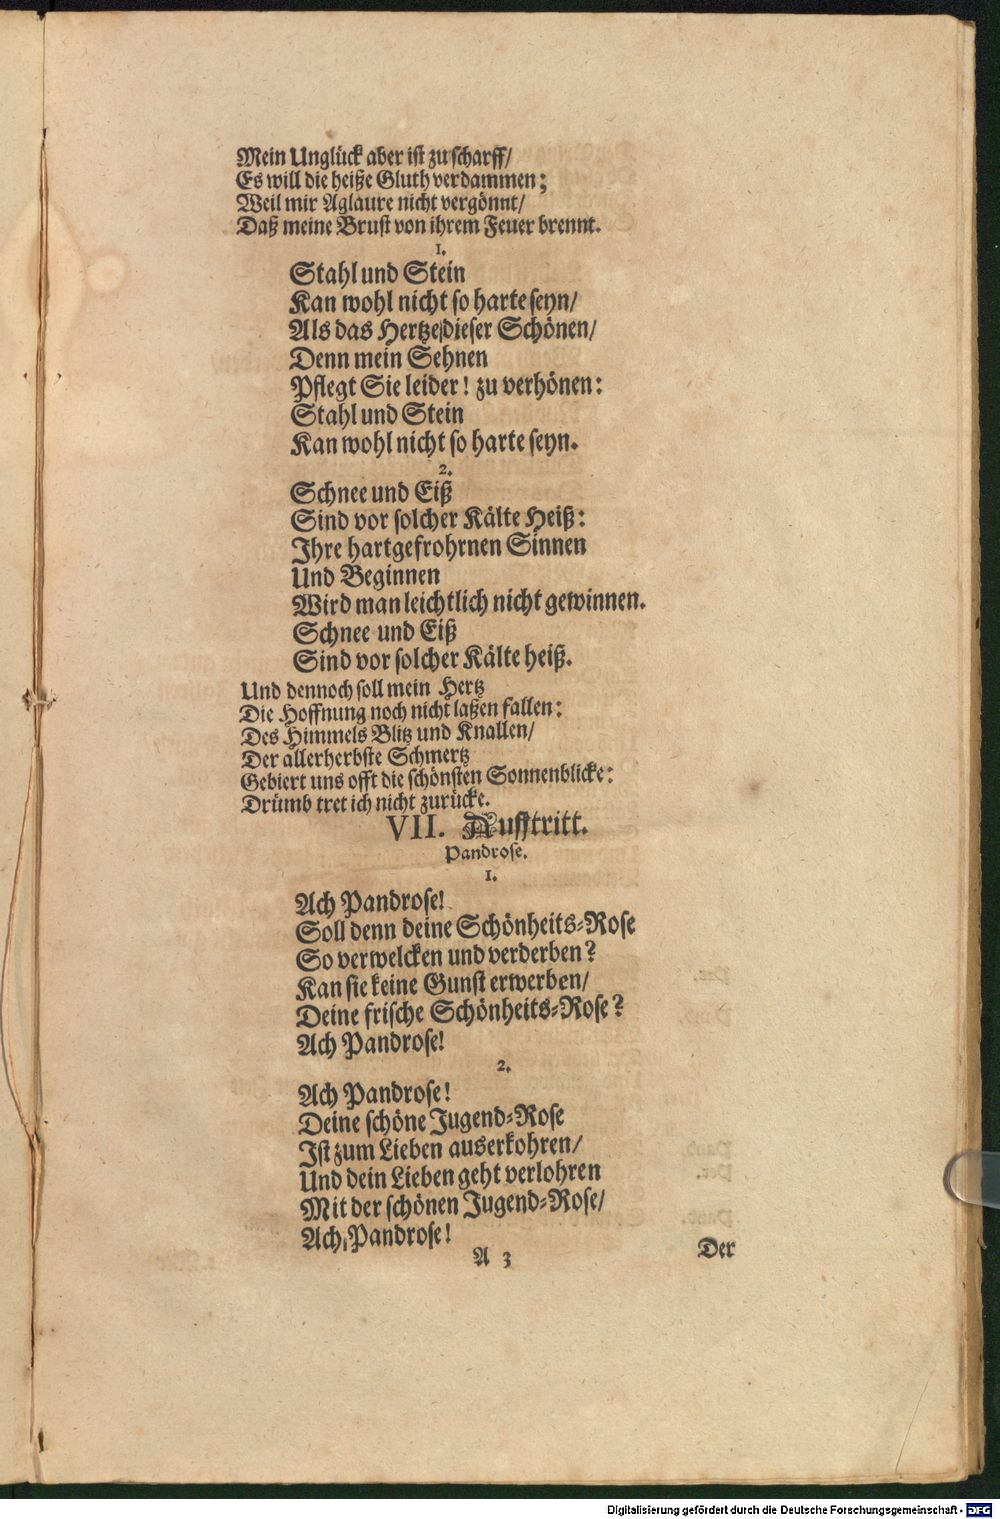 Mein Unglück aber ist zu scharff/
Es will die heiße Gluth verdammen;
Weil mir Aglaure nicht vergönnt/
Daß meine Brust von ihrem Feuer brennt.
1.
Stahl und Stein
Kan wohl nicht so harte seyn/
Als das Hertze dieser Schönen/
Denn mein Sehnen
Pflegt Sie leider! zu verhönen:
Stahl und Stein
Kan wohl nicht so harte seyn.
2.
Schnee und Eiß
Sind vor solcher Kälte Heiß:
Ihre hartgefrohrnen Sinnen
Und Beginnen
Wird man leichtlich nicht gewinnen.
Schnee und Eiß
Sind vor solcher Kälte heiß.
Und dennoch soll mein Hertz
Die Hoffnung noch nicht laßen fallen:
Des Himmels Blitz und Knallen/
Der allerherbste Schmertz
Gebiert uns offt die schönsten Sonnenblicke:
Drümb tret ich nicht zurücke.
VII. Aufftritt.
Pandrose.
1.
Ach Pandrose!
Soll denn deine Schönheits-Rose
So verwelcken und verderben?
Kan sie keine Gunst erwerben/
Deine frische Schönheits-Rose?
Ach Pandrose!
2.
Ach Pandrose!
Deine schöne Jugend-Rose
Ist zum Lieben auserkohren/
Und dein Lieben geht verlohren
Mit der schönen Jugend-Rose/
Ach, Pandrose!
A 3 Der
Digitalisierung gefördert durch die Deutsche Forschungsgemeinschaft - DFG